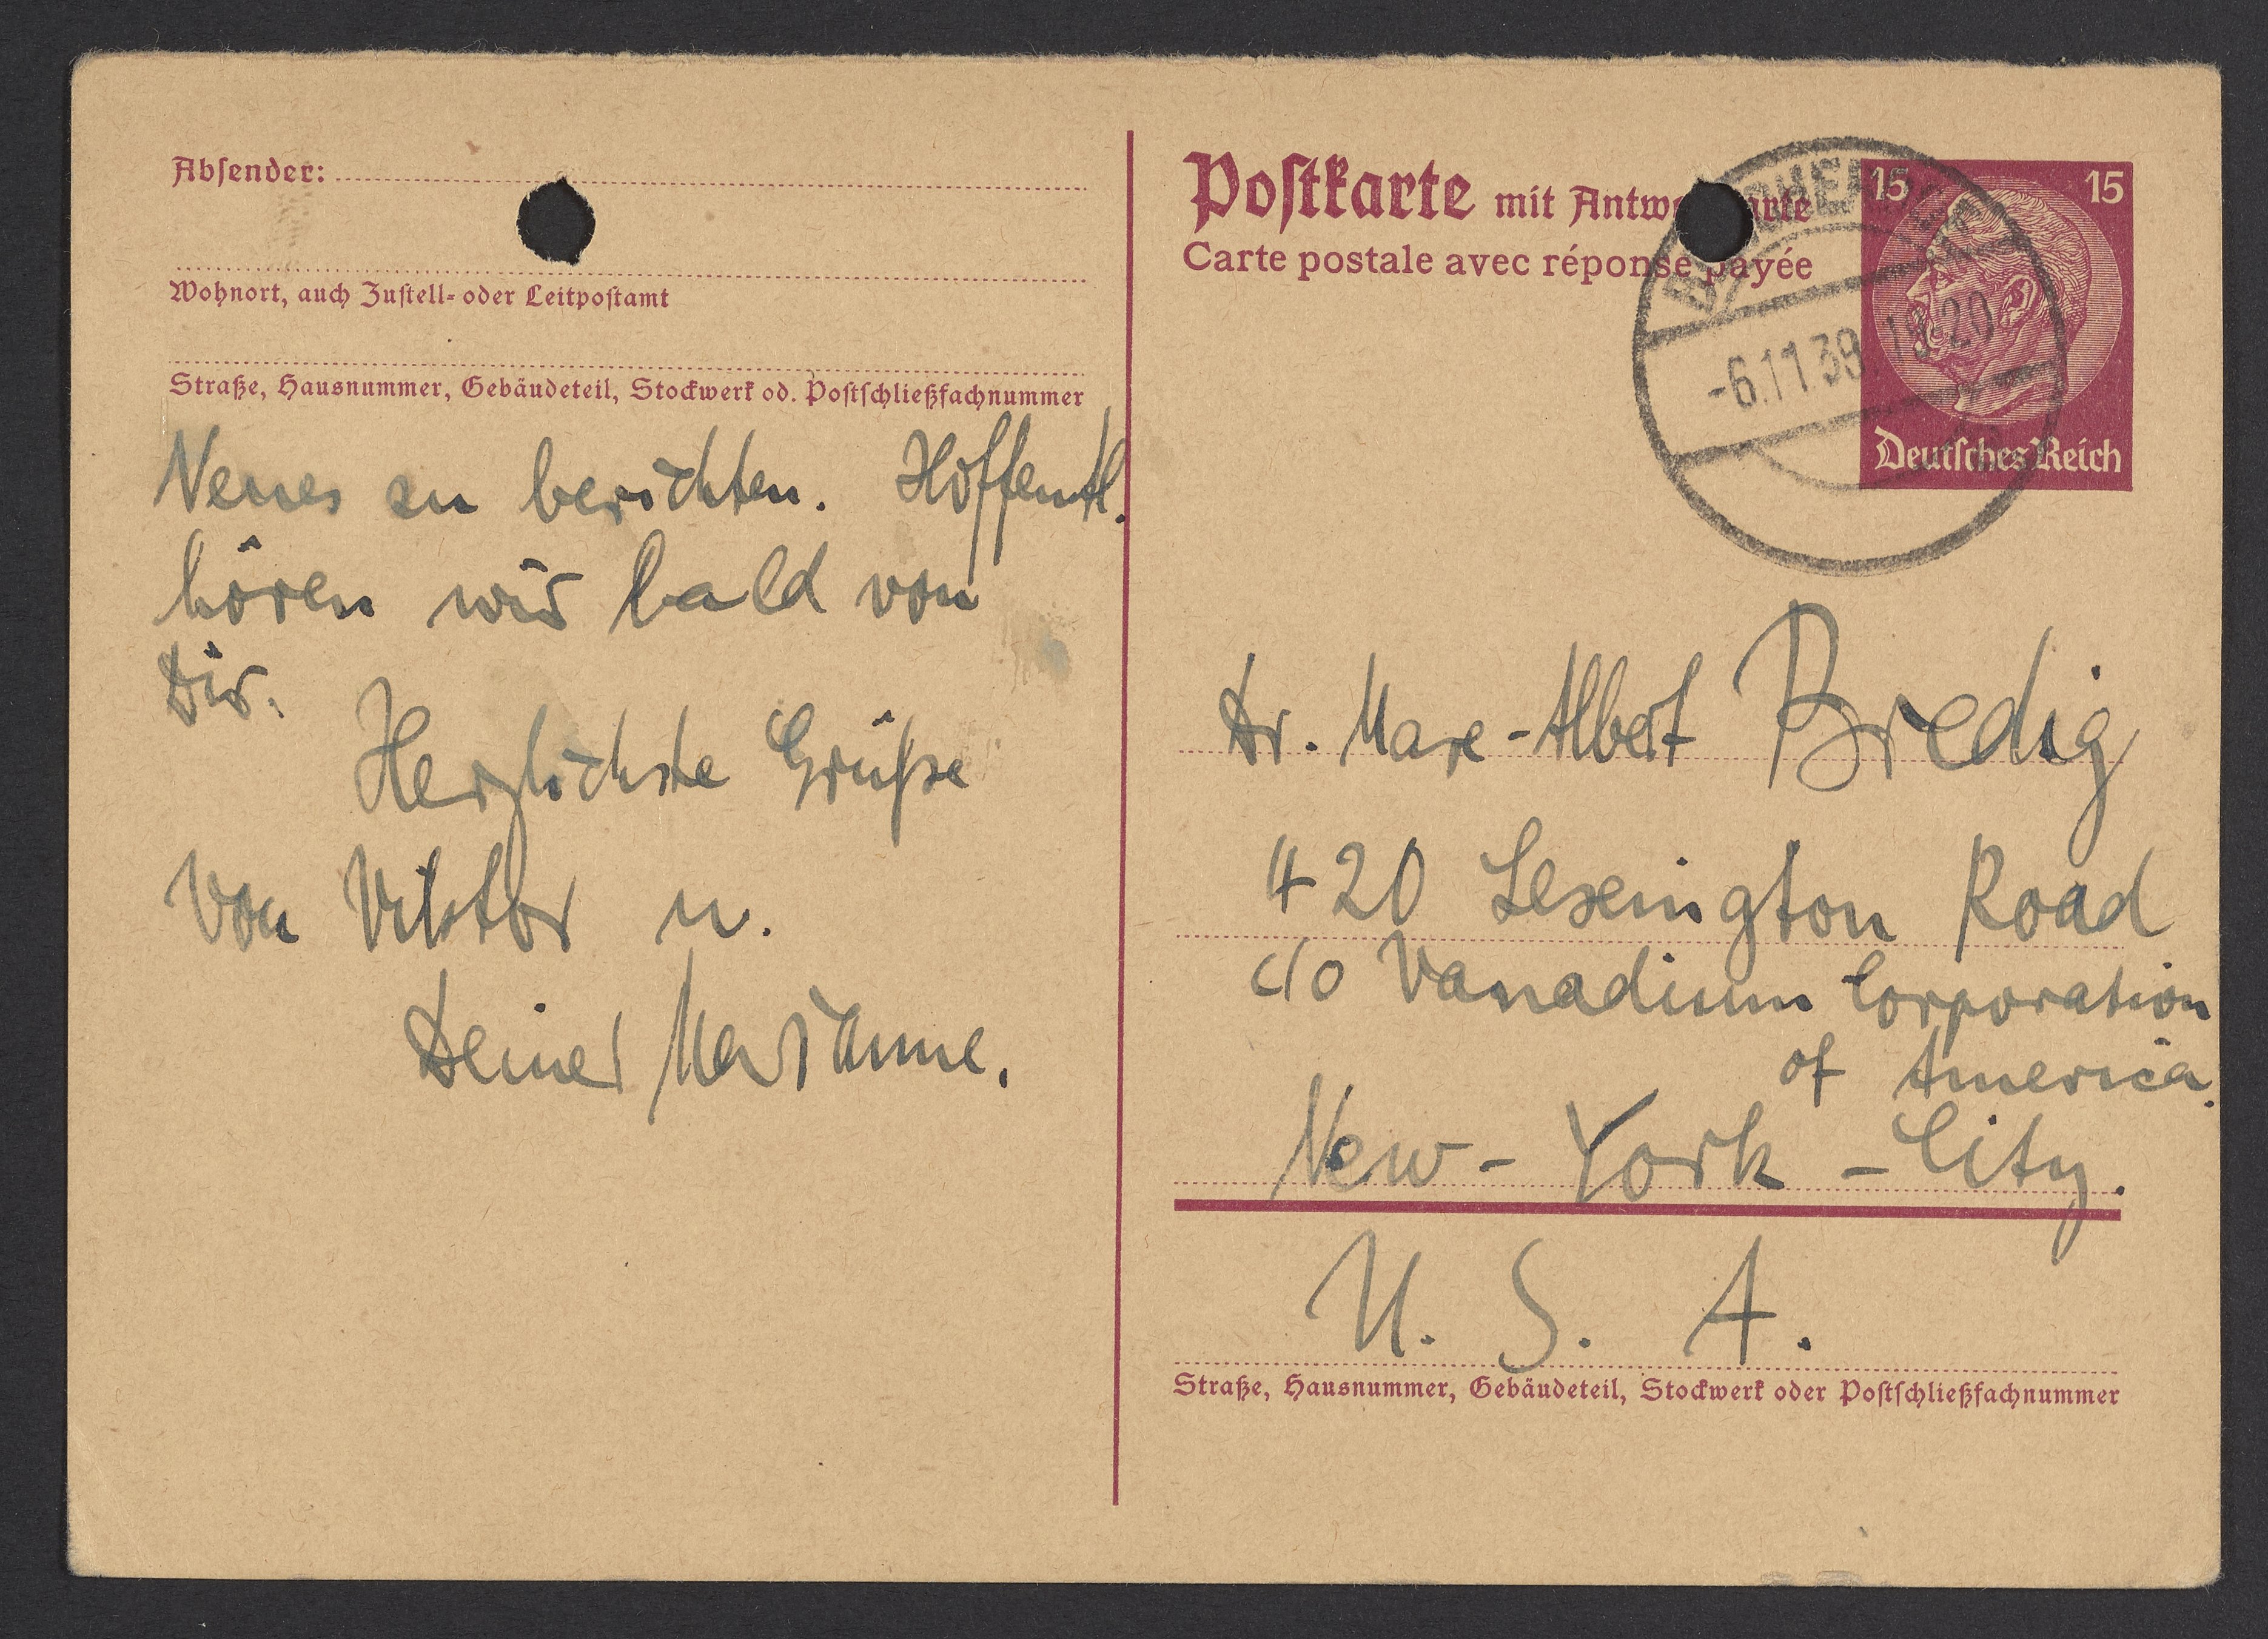 Absender:
Wohnort, auch Zustell- oder Leitpostamt
Straße, Hausnummer, Gebäudeteil, Stockwerk od. Postschließfachnummer
Neues zu berichten. Hoffentl.
hören wir bald von
Dir.
Herzlichste Grüße
von Viktor u.
Deiner Marianne.
Postkarte mit
Carte postale avec réponse payée
15 15
-6.11.39.
Deutsches Reich
Dr. Marc-Albert Bredig
420 Lexington Road
c/o Vanadium Corporation
of America.
New-York-City.
U. S. A.
Straße, Hausnummer, Gebäudeteil, Stockwerk oder Postschließfachnummer